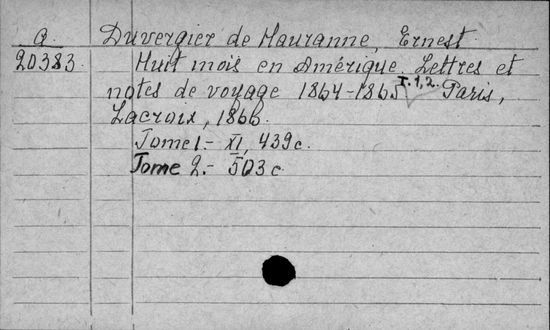 a. Duvergier de Hauranne, Ernest
20383. Huit mois en Amérique. Lettres et
notes de voyage 1864-1865 T. 1, 2. Paris,
Lacroix, 1866.
Tome 1.- XI, 439 c.
Tome 2.- 503 c.